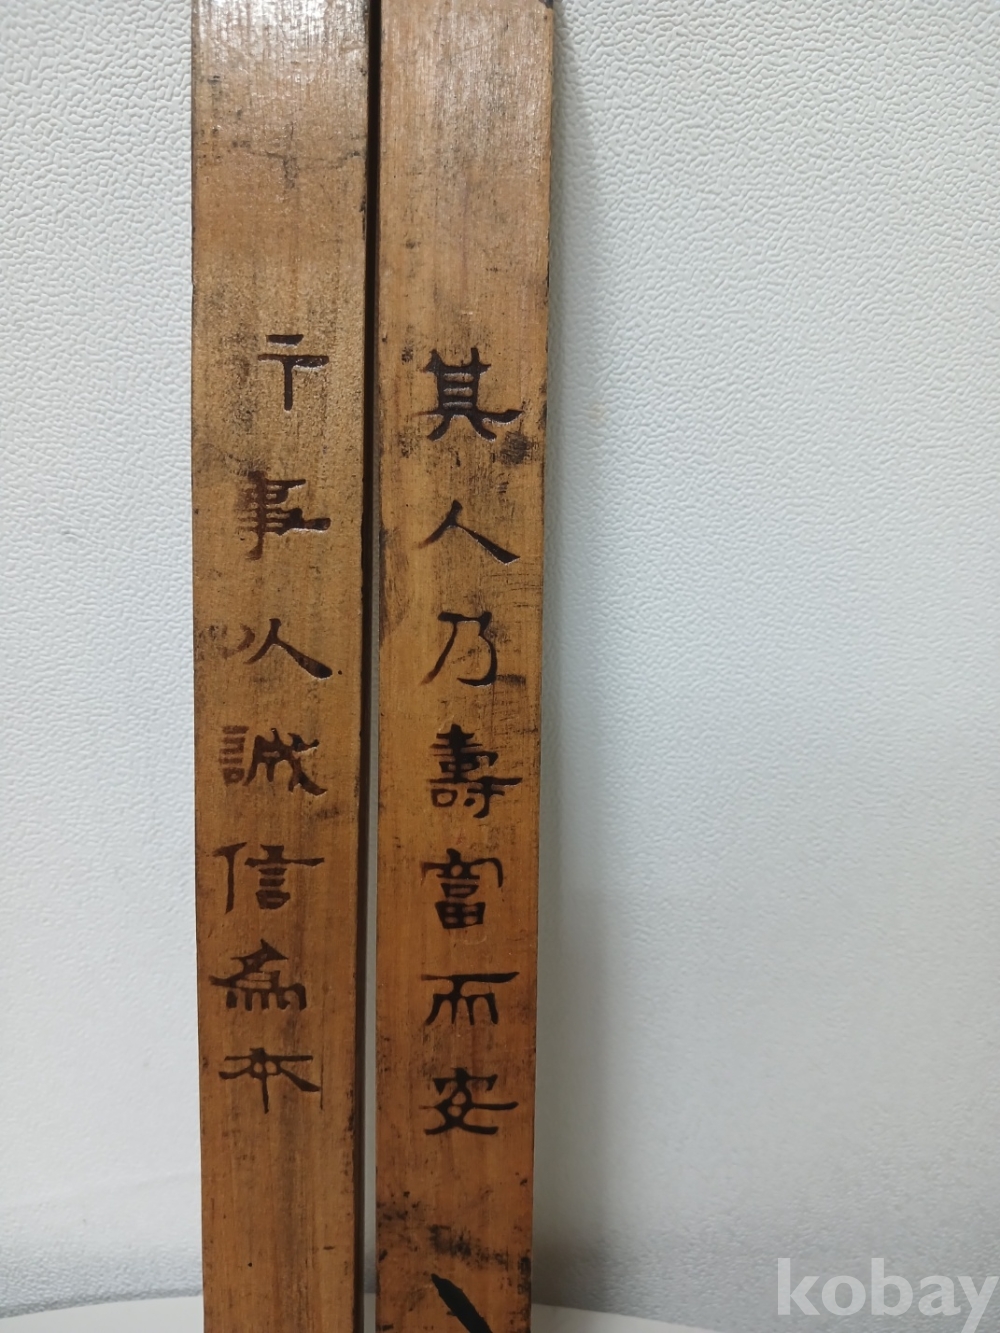 其人乃壽富而安
事以誠信為本
kobay